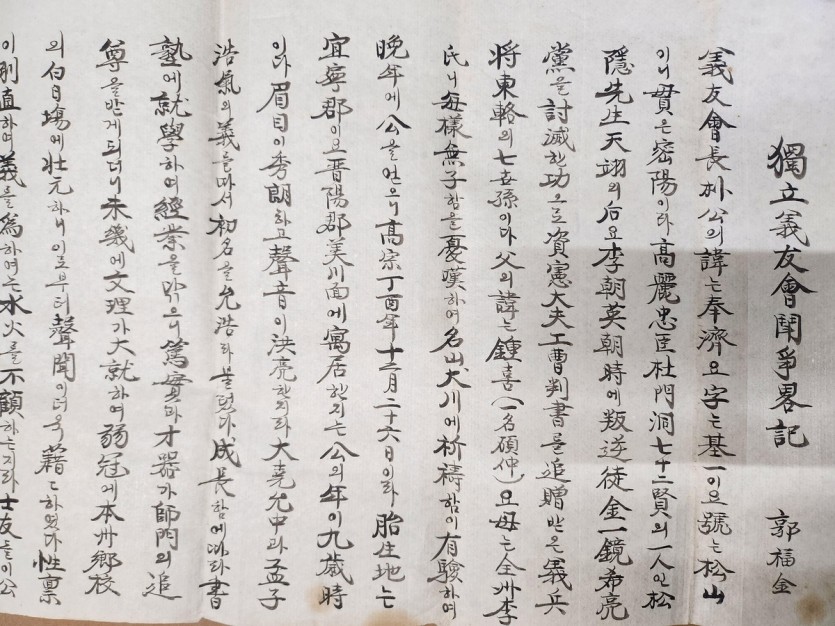 獨立義友會鬪爭畧記
郭福金
義友會長朴公의諱는奉濟요字는基一이요號는松山
이니貫은密陽이라高麗忠臣杜門洞七十二賢의一人인松
隱先生天翊의后요李朝英朝時에叛逆徒金一鏡希亮
黨을討滅한功으로資憲大夫工曹判書를追贈받은義兵
將東輅의七世孫이다父의諱는鍾喜(一名碩仲)요母는全州李
氏니每樣無子함을憂嘆하여名山大川에祈禱함이有驗하여
晩年에公을얻으니高宗丁酉年十二月二十六日이라胎生地는
宜寧郡이요晋陽郡美川面에寓居한지는公의年이九歲時
이다眉目이秀朗하고聲音이洪亮한지라大堯允中과孟子
浩氣의義를따서初名을允浩라불렀다成長함에따라書
塾에就學하여經業을닦으니篤實과才器가師門의追
尊을받게되더니未幾에文理가大就하여弱冠에本州鄕校
의白日場에壯元하니이로부터聲聞이더욱藉〻하였다性禀
이剛直하여義를爲하여는水火를不顧하는지라士友들이公